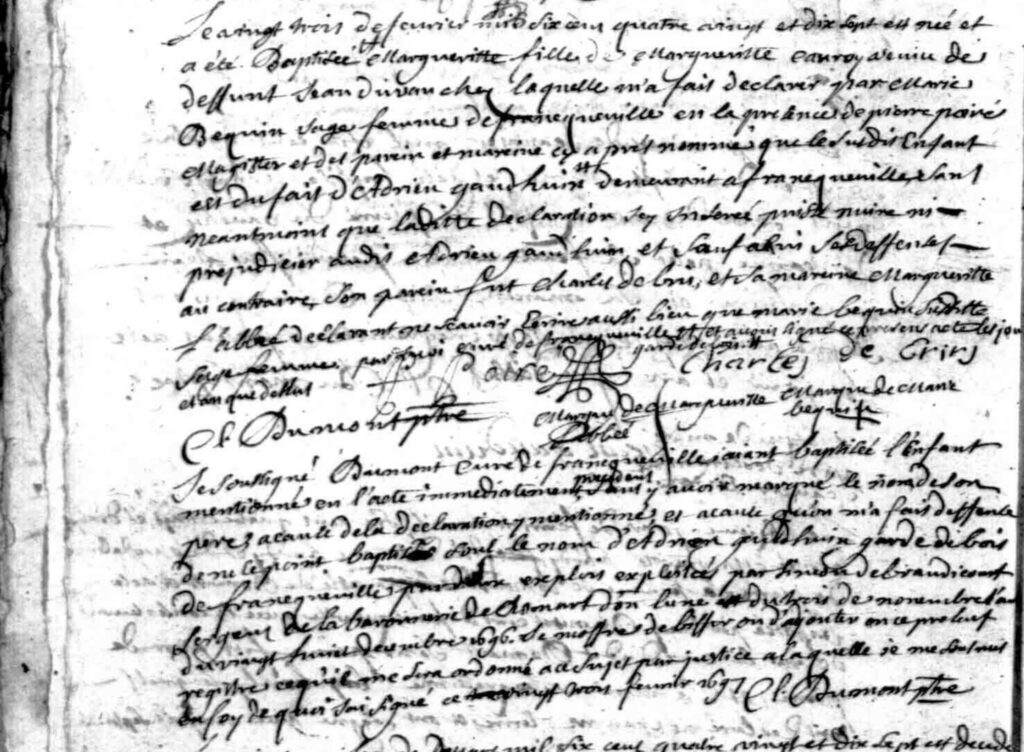 Le vingt trois de fevrier mil six cens quatre vingt et dix sept est née et
a été Baptisée Margueritte fille de Margueritte veuve de
deffunt Jean laquelle m'a fait declarer par Marie
Bequin sage femme de francqueville en la presence de pierre poiré
Magister et des parein et mareine cy aprés nommé que le susdit Enfant
est du fait d'Adrien gaudhuin demeurant a francqueville, sans
neantmoins que laditte declaration icy inserée puisse nuire ni
prejudicier audit Adrien gaudhuin et sauf a lui ses deffenses
au contraire, son parein fut Charles de bris, et sa mareine Margueritte
l'abbée declarant ne scavoir écrire aussi bien que marie bequin susditte
sage femme, par moi curé de francqueville et avons signé ce present acte les jour
et an que dessus garde de
Poiré Charles de Bris
Cl. Dumont ptre Marque de Margueritte Marque de Marie
l'abbée bequin
Je soussigné Dumont curé de francqueville aiant baptisée l'Enfant
mentionné en l'acte immediatement precedent sans y avoir marqué le nom de son
pere, a cause de la declaration y mentionnée et a cause qu'on m'a fait deffense
de ne le point baptiser soub le nom d'Adrien gaudhuin garde de bois
de francqueville par exploits exploités par de brandicourt
sergent de la baronnerie de Domart dont l'une du trois de novembre l'autre
du vingt huict decembre 1696. Je m'offre de biffer ou d'ajouter en ce present
registre ce qu'il me sera ordonné a ce sujet par justice a laquelle je me soumet
en foy de quoi j'ai signé ce vingt trois fevrier 1697 Cl. Dumont ptre
mil six cent quatre vingt et dix sept est decedé